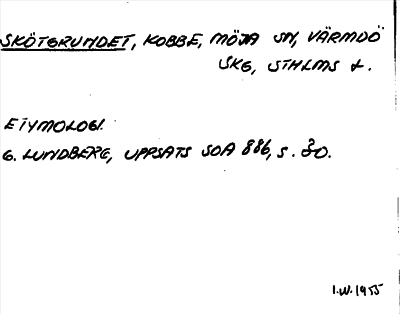 SKÖTGRUNDET, KOBBE, MÖJA SN, VÄRMDÖ
SKG, STHLMS L.
ETYMOLOGI.
G. LUNDBERG, UPPSATS SOA 886, S. 30.
I.W. 1955